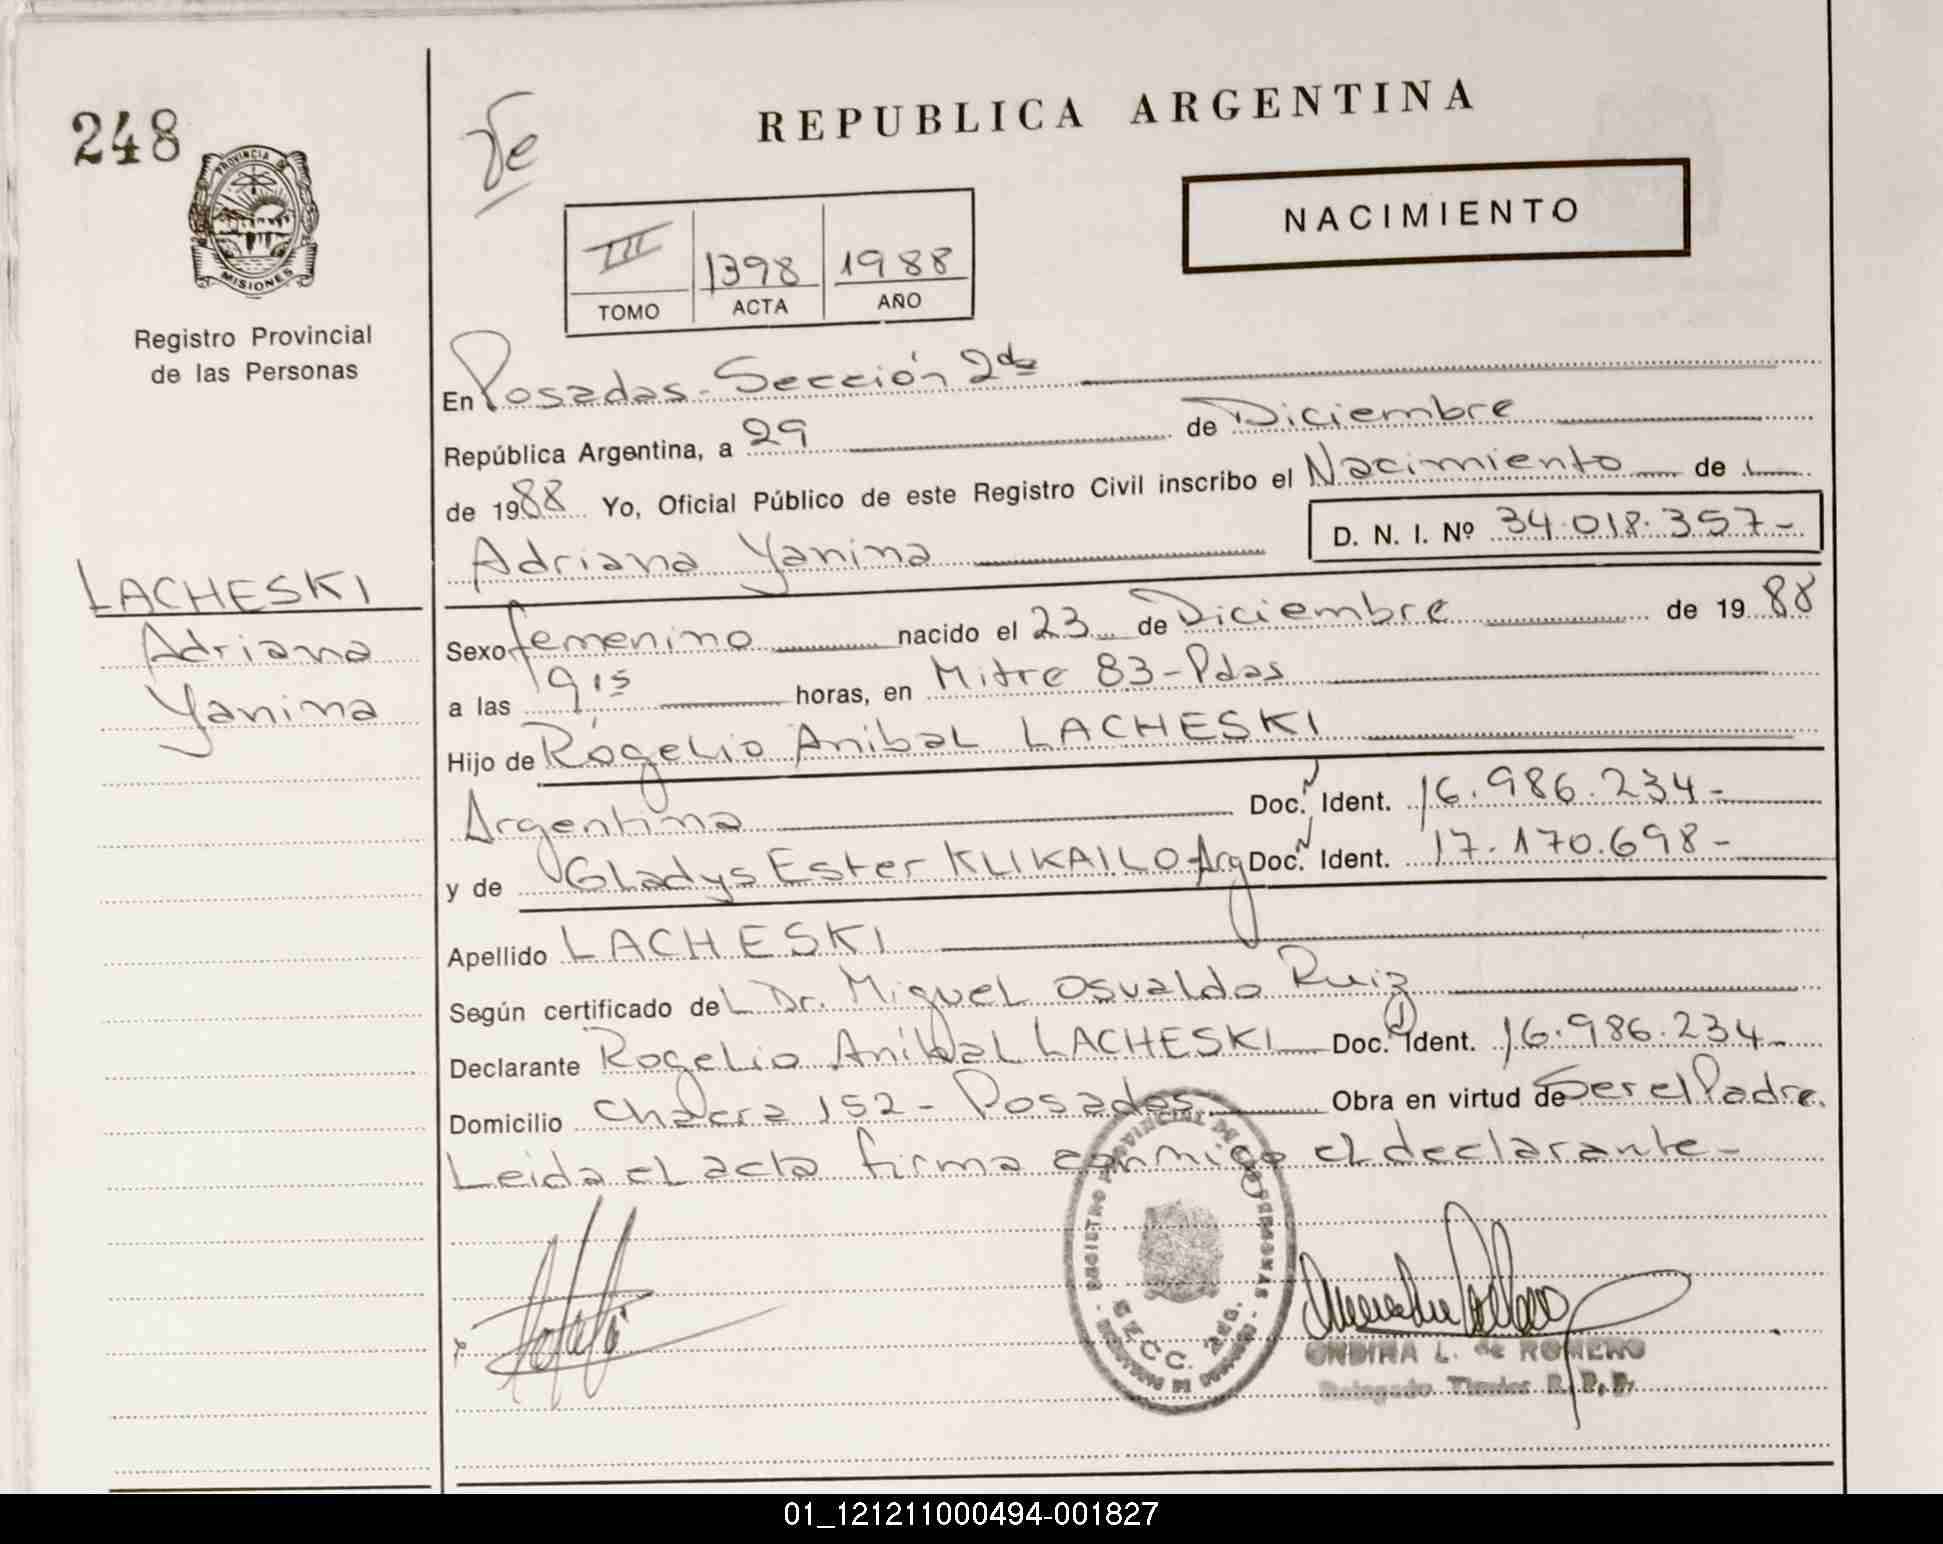 248
PROVINCIA DE
MISIONES
Registro Provincial
de las Personas
REPUBLICA ARGENTINA
NACIMIENTO
III 1398 1988
TOMO ACTA AÑO
En Posadas - Sección 2da
República Argentina, a 29 de Diciembre
de 1988 Yo, Oficial Público de este Registro Civil inscribo el Nacimiento de
Adriana Yanina D. N. I. Nº 34.018.357-
LACHESKI
Adriana
Yanina
Sexo femenino nacido el 23 de Diciembre de 1988
a las 19 15 horas, en Mitre 83-Pdas
Hijo de Rogelio Anibal LACHESKI
Argentina Doc. Ident. 16.986.234-
y de Gladys Ester KLIKAILO Arg Doc. Ident. 17.170.698-
Apellido LACHESKI
Según certificado del Dr. Miguel Osvaldo Ruiz
Declarante Rogelio Aníbal LACHESKI Doc. Ident. 16.986.234-
Domicilio Chacra 152 - Posadas Obra en virtud de Ser el Padre.
Leida el acta firma conmigo el declarante-
REGISTRO PROVINCIAL DE LAS PERSONAS
SECC. 2da.
ONDINA L. de ROMERO
Delegado Titular R. P. P.
01_121211000494-001827